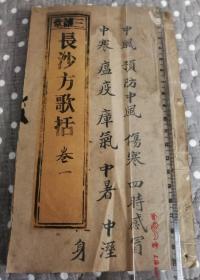 中風 預防中風 傷寒 四時感冒
中寒 瘟疫 氣 中暑 中溼
身
三讓堂
長沙方歌括 卷一